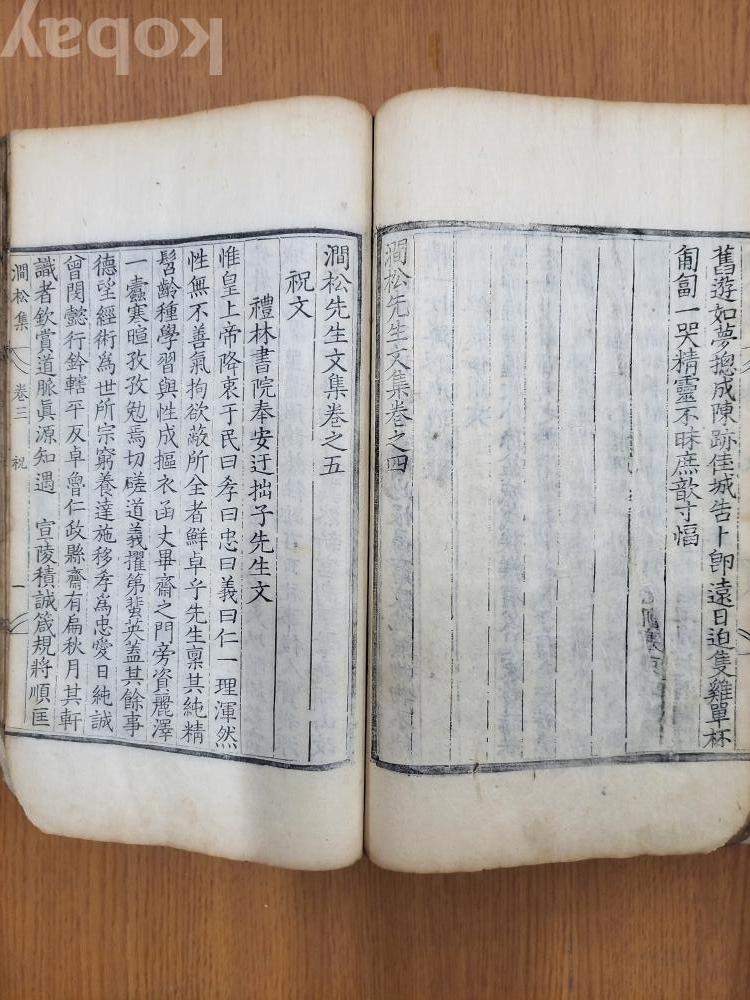 Kobay
舊遊如夢摠成陳跡佳城告卜卽遠日迫隻雞單杯
匍匐一哭精靈不昧庶歆寸愊
澗松先生文集卷之四
澗松先生文集卷之五
祝文
禮林書院奉安迂拙子先生文
惟皇上帝降衷于民曰孝曰忠曰義曰仁一理渾然
性無不善氣拘欲蔽所全者鮮卓乎先生稟其純精
髫齡種學習與性成摳衣函丈畢齋之門旁資麗澤
一蠹寒暄孜孜勉焉切磋道義擢第蜚英蓋其餘事
德望經術爲世所宗窮養達施移孝爲忠愛日純誠
曾閔懿行鈐轄平反卓魯仁政縣齋有扁秋月其軒
識者欽賞道脈眞源知遇 宣陵積誠箴規將順匡
澗松集 卷三 祝 一